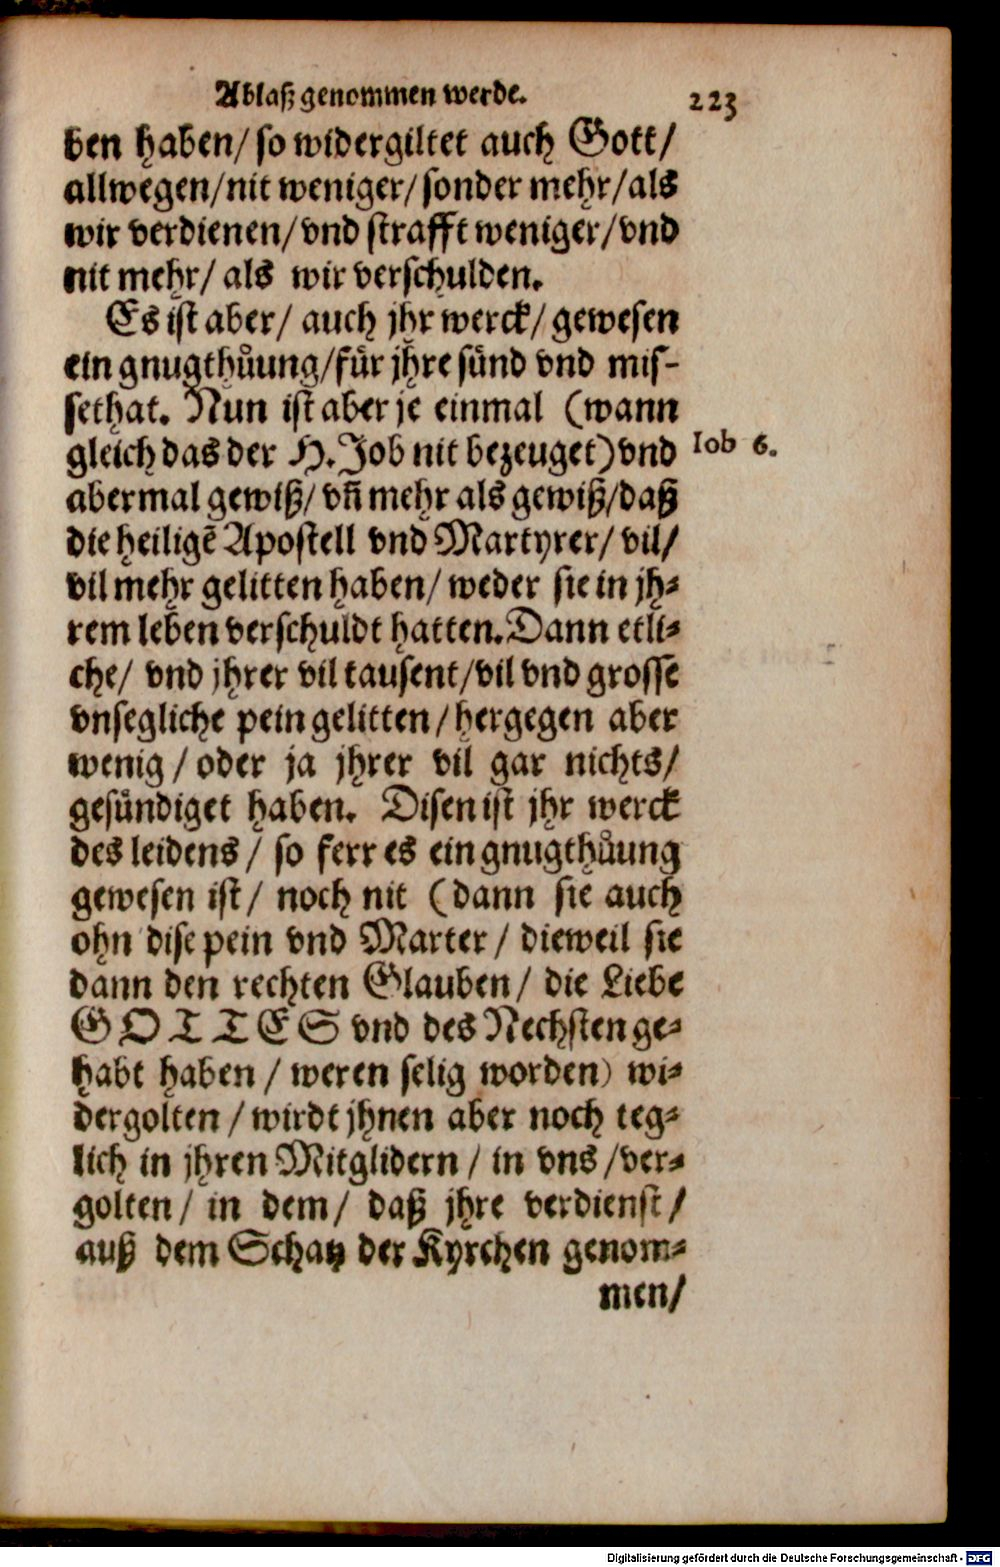 Ablaß genommen werde. 223
ben haben/ so widergiltet auch Gott/
allwegen/nit weniger/sonder mehr/als
wir verdienen/vnd strafft weniger/vnd
nit mehr/ als wir verschulden.
Es ist aber/ auch jhr werck/ gewesen
ein gnugthůung/für jhre sünd vnd mis-
sethat. Nun ist aber je einmal (wann
gleich das der H. Job nit bezeuget) vnd Iob 6.
abermal gewiß/ vn̄ mehr als gewiß/daß
die heiligē Apostell vnd Martyrer/ vil/
vil mehr gelitten haben/ weder sie in jh-
rem leben verschuldt hatten. Dann etli-
che/ vnd jhrer vil tausent/vil vnd grosse
vnsegliche pein gelitten/hergegen aber
wenig / oder ja jhrer vil gar nichts/
gesündiget haben. Disen ist jhr werck
des leidens / so ferr es ein gnugthůung
gewesen ist/ noch nit (dann sie auch
ohn dise pein vnd Marter / dieweil sie
dann den rechten Glauben/ die Liebe
GOTTES vnd des Nechsten ge-
habt haben / weren selig worden) wi-
dergolten / wirdt jhnen aber noch teg-
lich in jhren Mitglidern / in vns /ver-
golten/ in dem/ daß jhre verdienst/
auß dem Schatz der Kyrchen genom-
men/
Digitalisierung gefördert durch die Deutsche Forschungsgemeinschaft - DFG